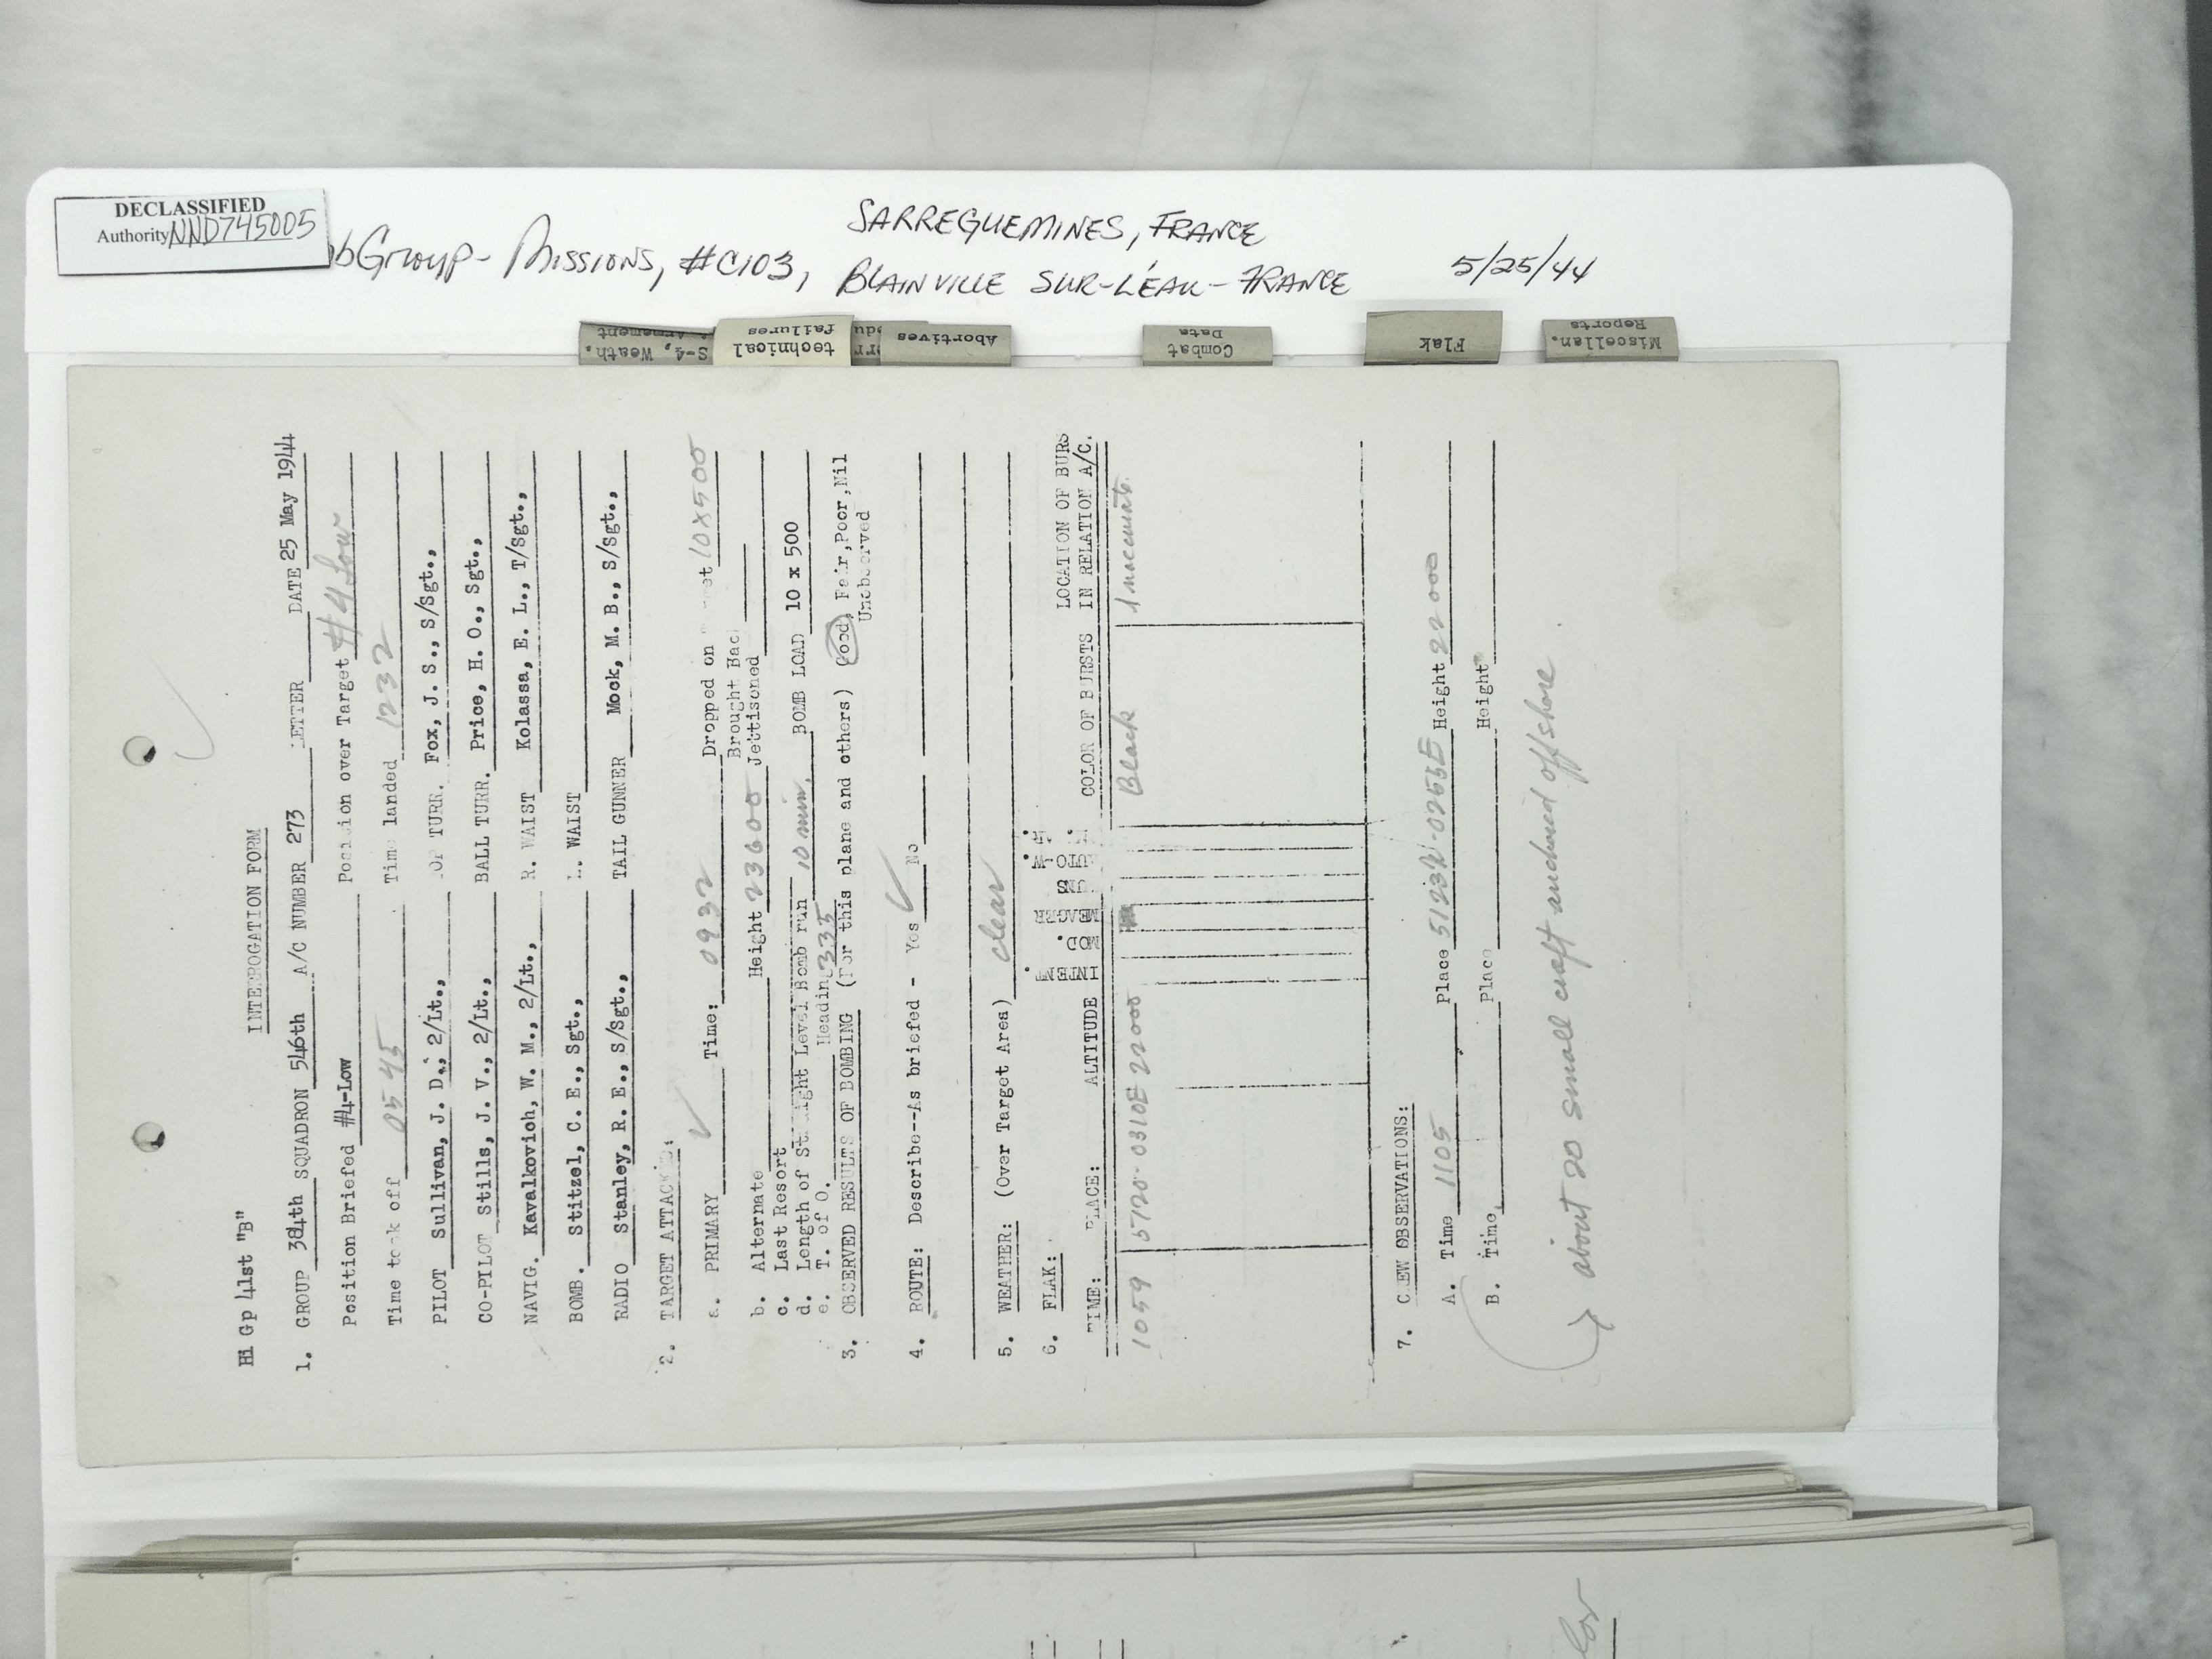 DECLASSIFIED
Authority NND745005
bGroup- Missions, #C103,
SARREGUEMINES, FRANCE
BLAINVILLE SUR-L'EAU-FRANCE
5/25/44
S-4, Weath.
Armement
technical
failures
Abortives
Combat
Data
Flak
Miscellan.
Reports
INTERROGATION FORM
Hi Gp 41st "B"
1. GROUP 384th SQUADRON 546th A/C NUMBER 273 LETTER DATE 25 May 1944
Position Briefed #4-Low Position over Target #4 Low
Time took off 0545 Time landed 1232
PILOT Sullivan, J. D., 2/Lt., TOP TURR. Fox, J. S., S/Sgt.,
CO-PILOT Stills, J. V., 2/Lt., BALL TURR. Price, H. O., Sgt.,
NAVIG. Kavalkovich, W. M., 2/Lt., R. WAIST Kolassa, E. L., T/Sgt.,
BOMB. Stitzel, C. E., Sgt., L. WAIST
RADIO Stanley, R. E., S/Sgt., TAIL GUNNER Mock, M. B., S/Sgt.,
2. TARGET ATTACKED:
a. PRIMARY ✓ Time: 0932 Dropped on 10x500
Brought Bac
b. Alternate Height 23600 Jettisoned
c. Last Resort
d. Length of Straight Level Bomb run 10 min. BOMB LOAD 10 x 500
e. T. of O. Heading 335
3. OBSERVED RESULTS OF BOMBING (For this plane and others) Good, Fair, Poor, Nil
Unobserved
4. ROUTE: Describe--As briefed - Yes ✓ No
5. WEATHER: (Over Target Area) clear
6. FLAK:
TIME: PLACE: ALTITUDE INTENT. MOD. MEAGER GUNS AUTO-W. COLOR OF BURSTS LOCATION OF BURS
IN RELATION A/C.
1059 5720-0310E 22000 Black Inaccurate
7. CREW OBSERVATIONS:
A. Time 1105 Place 5123N-0255E Height 22000
B. Time Place Height
about 20 small craft anchored offshore.
low